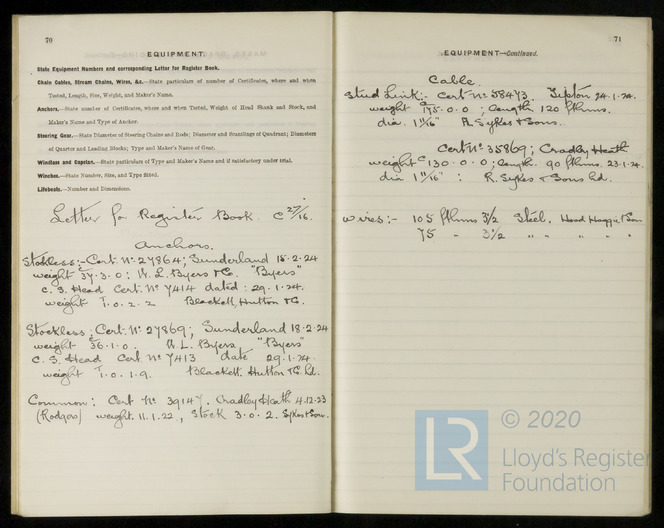 70
EQUIPMENT.
State Equipment Numbers and corresponding Letter for Register Book.
Chain Cables, Stream Chains, Wires, &c.—State particulars of number of Certificates, where and when
Tested, Length, Size, Weight, and Maker's Name.
Anchors.—State number of Certificates, where and when Tested, Weight of Head Shank and Stock, and
Maker's Name and Type of Anchor.
Steering Gear.—State Diameter of Steering Chains and Rods; Diameter and Scantlings of Quadrant; Diameters
of Quarter and Leading Blocks; Type and Maker's Name of Gear.
Windlass and Capstan.—State particulars of Type and Maker's Name and if satisfactory under trial.
Winches.—State Number, Size, and Type fitted.
Lifeboats.—Number and Dimensions.
Letter for Register Book. C 27/16.
Anchors.
Stockless:- Cert. No. 27864; Sunderland 18.2.24
weight 37.3.0: W. L. Byers & C. "Byers"
C. S. Head Cert. No 7414 dated: 29.1.24.
weight 1.0.2.2 Blackett, Hutton & C.
Stockless: Cert. No. 27869; Sunderland 18.2.24
weight 36.1.0. W. L. Byers, "Byers"
C. S. Head Cert. No 7413 date 29.1.24.
weight 1.0.1.9. Blackett. Hutton & C. Ld.
Common: Cert No. 39147. Cradley Heath 4.12.23
(Rodgers) weight. 11.1.22, Stock 3.0.2. Sykes & Son.
71
EQUIPMENT—Continued.
Cable.
Stud Link:- Cert. No. 58473 Tipton 24.1.24.
weight 175.0.0; length 120 fthms.
dia. 1 11/16" R. Sykes & Sons.
Cert No. 35869; Cradley Heath
weight C 130.0.0; length. 90 fthms. 23.1.24.
dia 1 11/16": R. Sykes & Sons Ld.
Wires:- 105 fthms 3½ Steel. Hood Haggie & Son
75 " 3½ " " " "
© 2020
LR
Lloyd's Register
Foundation